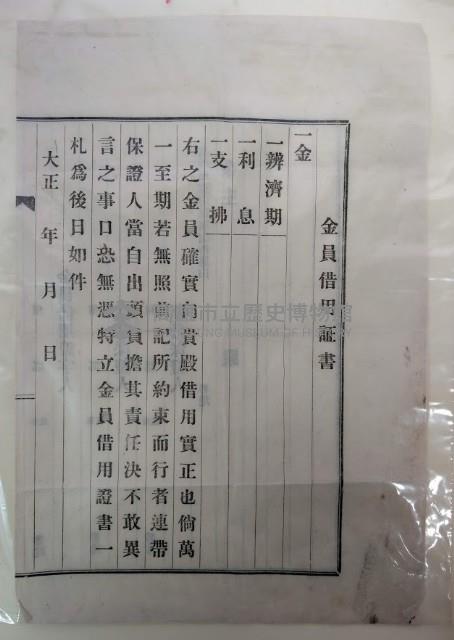 金員借用証書
一金
一辨濟期
一利息
一支拂
右之金員確實向貴殿借用實正也倘萬
一至期若無照前記所約束而行者連帶
保證人當自出頭負擔其責任決不敢異
言之事口恐無憑特立金員借用證書一
札爲後日如件
大正 年 月 日
市立歷史博物館
MUSEUM OF HISTORY